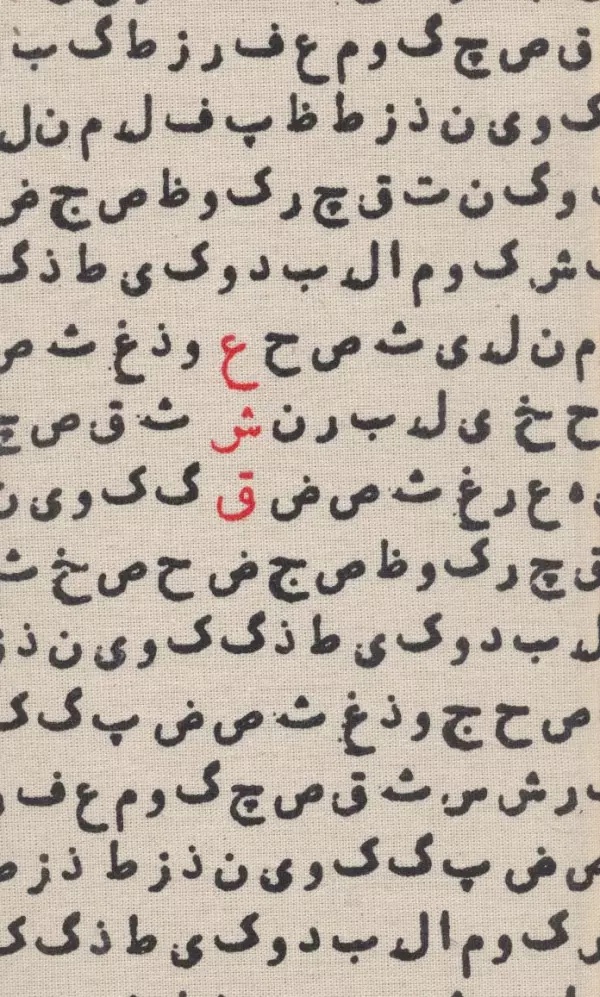 ق ص چ ک و م ع ف ر ز ط گ ب
ک و ی ن ذ ز ط ظ پ ف ل د م ن ل
و گ ن ت ق چ ر ک و ظ ص ج ض
ش ک و م ا ل د ب د و ک ی ط ذ گ
م ن ل د ی ث ص ح ع و ذ غ ث ص
ح خ ی ل د ب ر ن ش ث ق ص چ
ه ع ر غ ث ص ض ق گ ک و ی ن
ق چ ر گ و ظ ص ج ض ح ص خ ث
ل د ب د و ک ی ط ذ گ ک و ی ن ذ ز
ص ح ج و ذ غ ث ص ض پ گ ک
ر ش س ث ق ص چ گ و م ع ف ر
ص ض پ گ ک و ی ن ذ ز ط ذ ز ط
ر ک و م ا ل د ب د و ک ی ط ذ گ ک